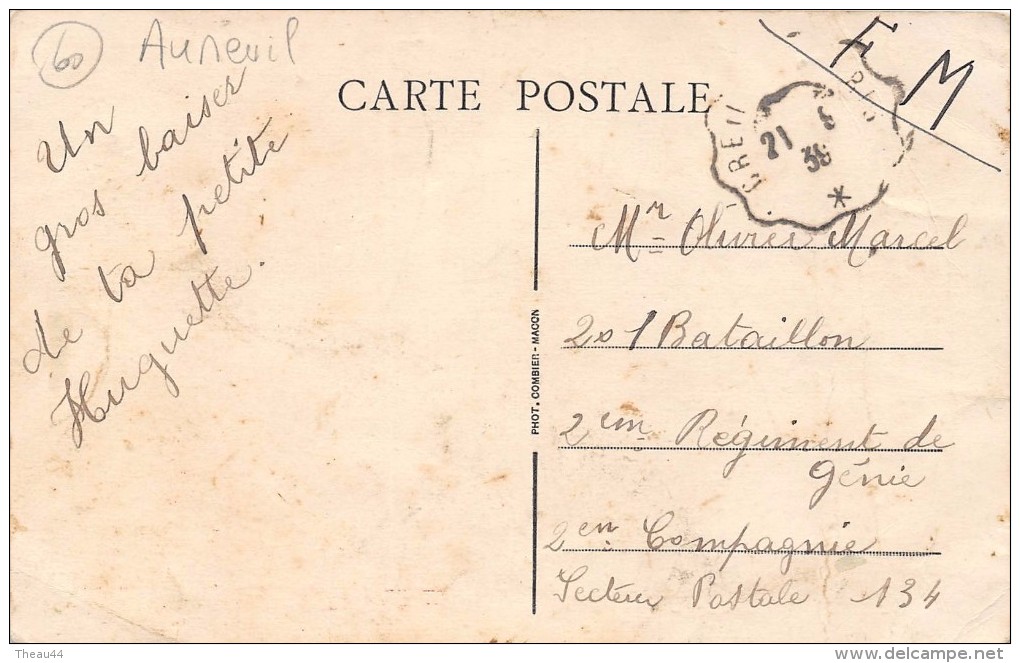 60 Auneuil
CARTE POSTALE
F M
CREIL
21 8
39
Un
gros baiser
de ta petite
Huguette.
Mr Olivier Marcel
201 Bataillon
2em Régiment de
Génie
2em Compagnie
Secteur Postale 134
PHOT. COMBIER - MACON
Theau44
delcampe.net